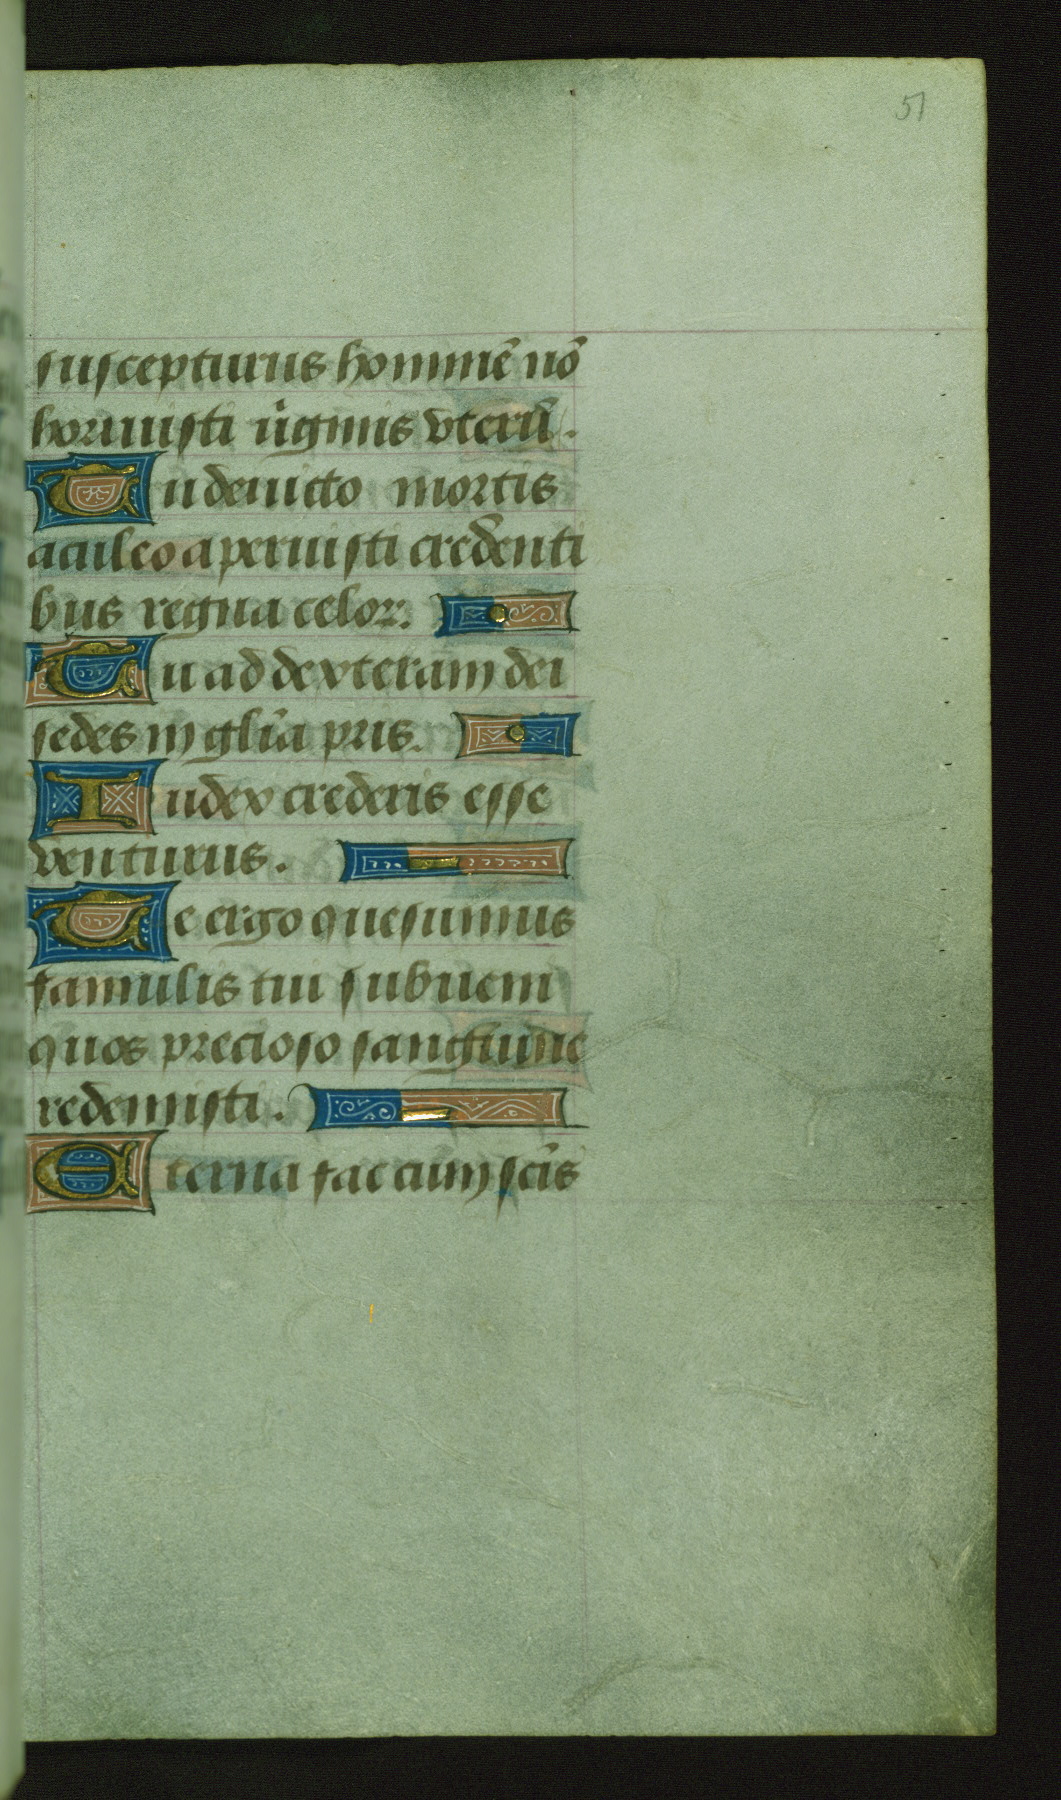 51
suscepturus hominē nō
horruisti v̄ginis vterū.
Tu deuicto mortis
aculeo aperuisti credenti
bus regna celorꝝ.
Tu ad dexteram dei
sedes in gl̄ia pr̄is.
Iudex crederis esse
venturus.
Te ergo quesumus
famulis tui subueni
quos precioso sanguine
redemisti.
Eterna fac cūm sc̄is